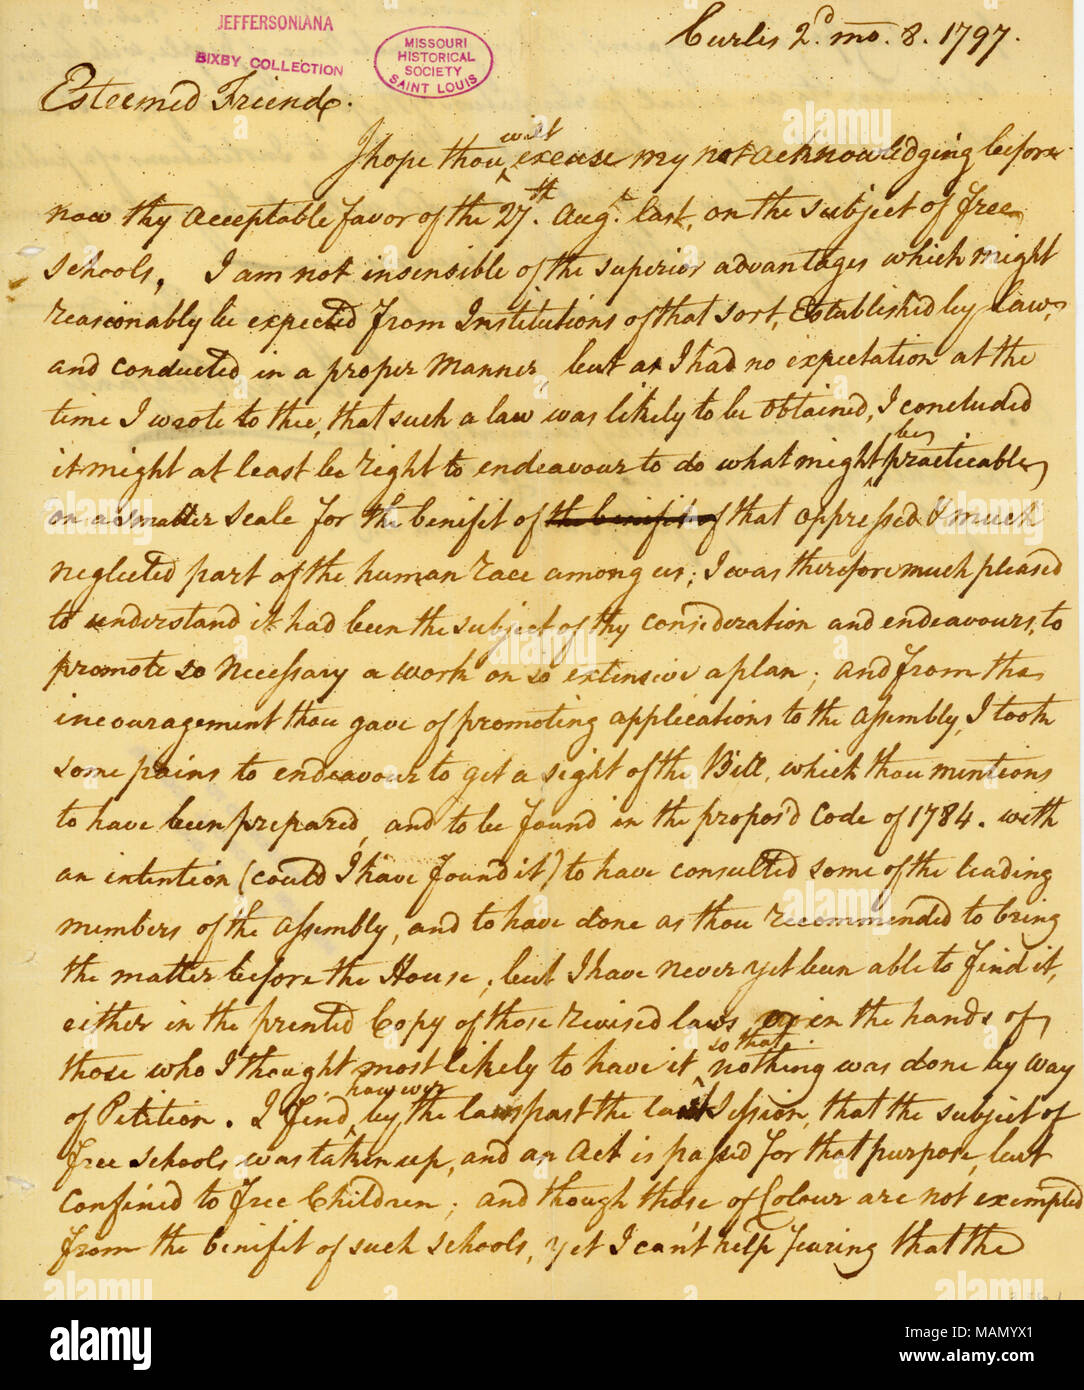 JEFFERSONIANA
BIXBY COLLECTION
MISSOURI
HISTORICAL
SOCIETY
SAINT LOUIS
Curles 2d. mo. 8. 1797.
Esteemed Friend.
will
I hope thou ^ excuse my not acknowledging before
now thy acceptable favor of the 27th. Augt. last, on the subject of free
schools. I am not insensible of the superior advantages which might
reasonably be expected from Institutions of that sort, Established by law,
and conducted in a proper Manner, but as I had no expectation at the
time I wrote to thee, that such a law was likely to be obtained, I concluded
be
it might at least be right to endeavour to do what might ^ practicable
on a smaller scale for the benifit of the benifit of that oppressed & much
neglected part of the human race among us; I was therefore much pleased
to understand it had been the subject of thy consideration and endeavours, to
promote so necessary a work on so extensive a plan; and from the
incouragement thou gave of promoting applications to the Assembly, I took
some pains to endeavour to get a sight of the Bill, which thou mentions
to have been prepared, and to be found in the propos'd Code of 1784. with
an intention (could I have found it) to have consulted some of the leading
members of the Assembly, and to have done as thou recommended to bring
the matter before the House; but I have never yet been able to find it,
either in the printed Copy of those revised laws, or in the hands of
so that
those who I thought most likely to have it ^ nothing was done by way
however
of Petition. I find ^ by the laws past the last Session, that the subject of
free schools was taken up, and an Act is passed for that purpose, but
confined to free Children; and though those of Colour are not exempted
from the benifit of such schools, yet I can't help fearing that the
alamy
Image ID: MAMYX1
www.alamy.com